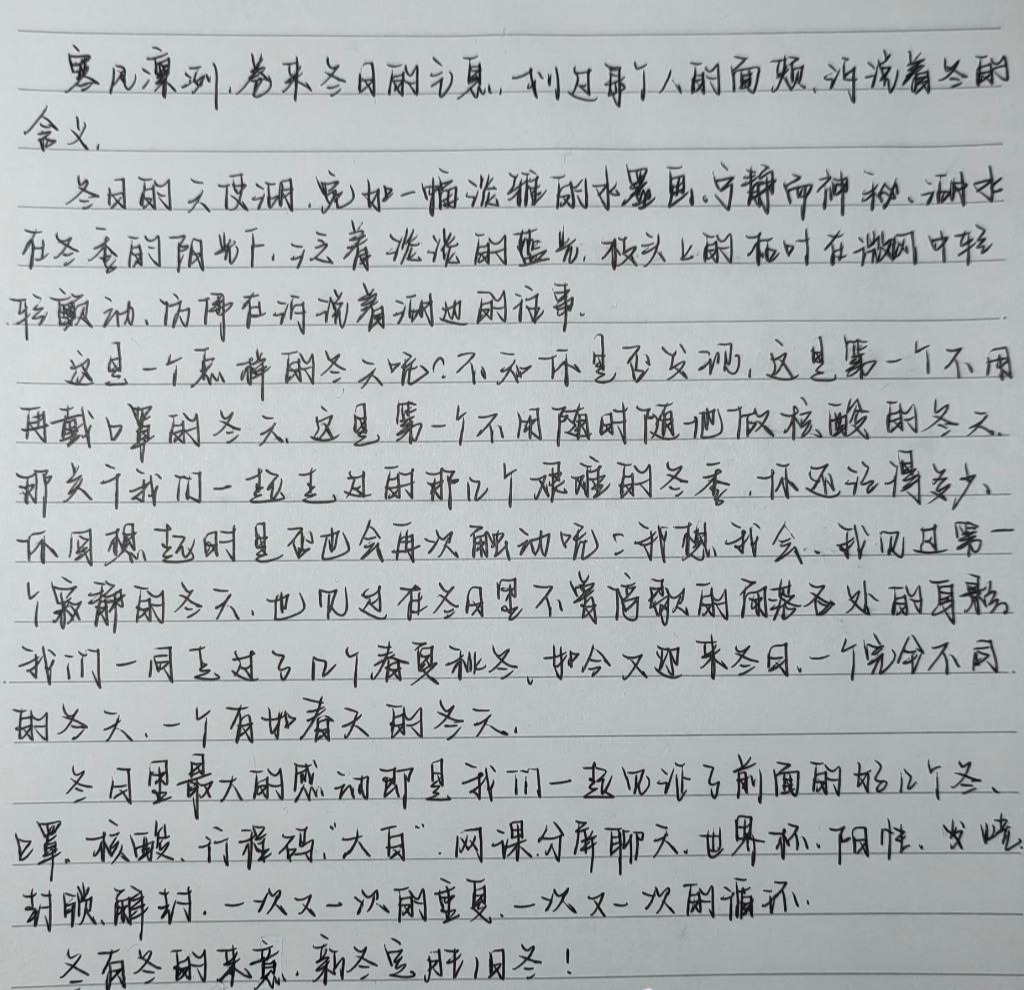 寒风凛冽,卷来冬日的讯息,划过每个人的面颊,诉说着冬的
含义,
冬日的天设湖,宛如一幅淡雅的水墨画,宁静而神秘,湖水
在冬季的阳光下,泛着淡淡的蓝光,枝头上的枯叶在微风中轻
轻颤动,仿佛在诉说着湖边的往事.
这是一个怎样的冬天呢?不知你是否发现,这是第一个不用
再戴口罩的冬天,这是第一个不用随时随地做核酸的冬天.
那关于我们一起走过的那几个艰难的冬季,你还记得多少,
你回想起时是否也会再次触动呢?我想,我会、我见过第一
个寂静的冬天,也见过在冬日里不曾停歇的角落各处的身影,
我们一同走过了几个春夏秋冬,如今又迎来冬日,一个完全不同
的冬天,一个有如春天的冬天.
冬日里最大的感动即是我们一起见证了前面的好几个冬、
口罩,核酸,行程码,"大白",网课分屏聊天,世界杯,阳性,发烧,
封锁,解封,一次又一次的重复,一次又一次的循环.
冬有冬的来意,新冬定胜旧冬!